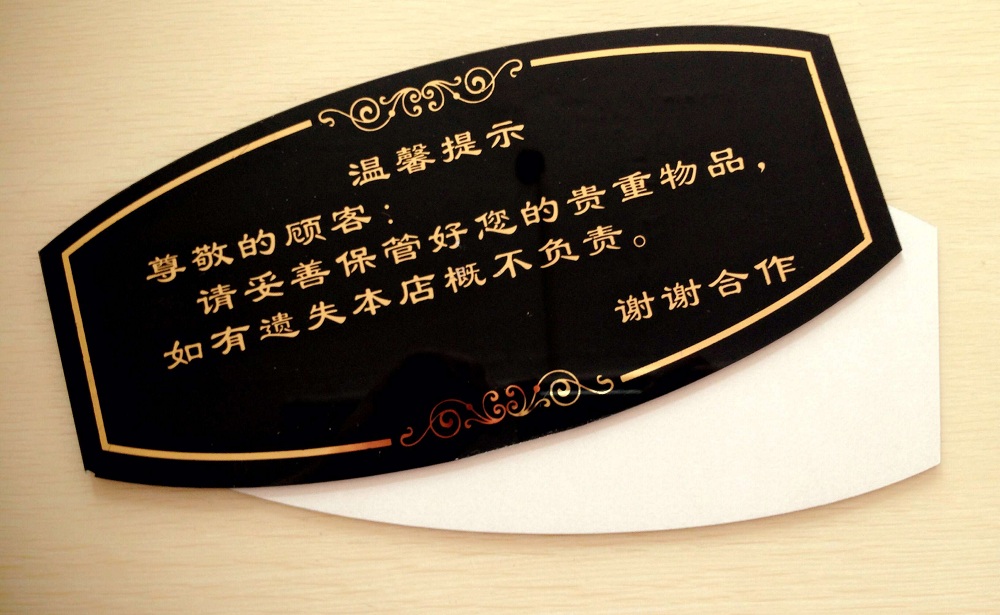 温馨提示
尊敬的顾客：
请妥善保管好您的贵重物品，
如有遗失本店概不负责。
谢谢合作